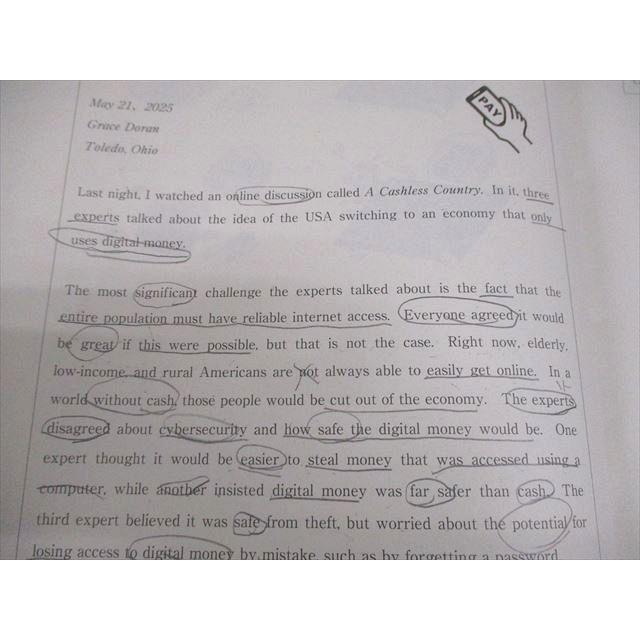 May 21, 2025
PAY
Grace Doran
Toledo, Ohio
Last night, I watched an online discussion called A Cashless Country. In it, three
experts talked about the idea of the USA switching to an economy that only
uses digital money.
The most significant challenge the experts talked about is the fact that the
entire population must have reliable internet access. Everyone agreed it would
be great if this were possible, but that is not the case. Right now, elderly,
low-income, and rural Americans are not always able to easily get online. In a
world without cash, those people would be cut out of the economy. The experts
disagreed about cybersecurity and how safe the digital money would be. One
expert thought it would be easier to steal money that was accessed using a
computer, while another insisted digital money was far safer than cash. The
third expert believed it was safe from theft, but worried about the potential for
losing access to digital money by mistake, such as by forgetting a password.